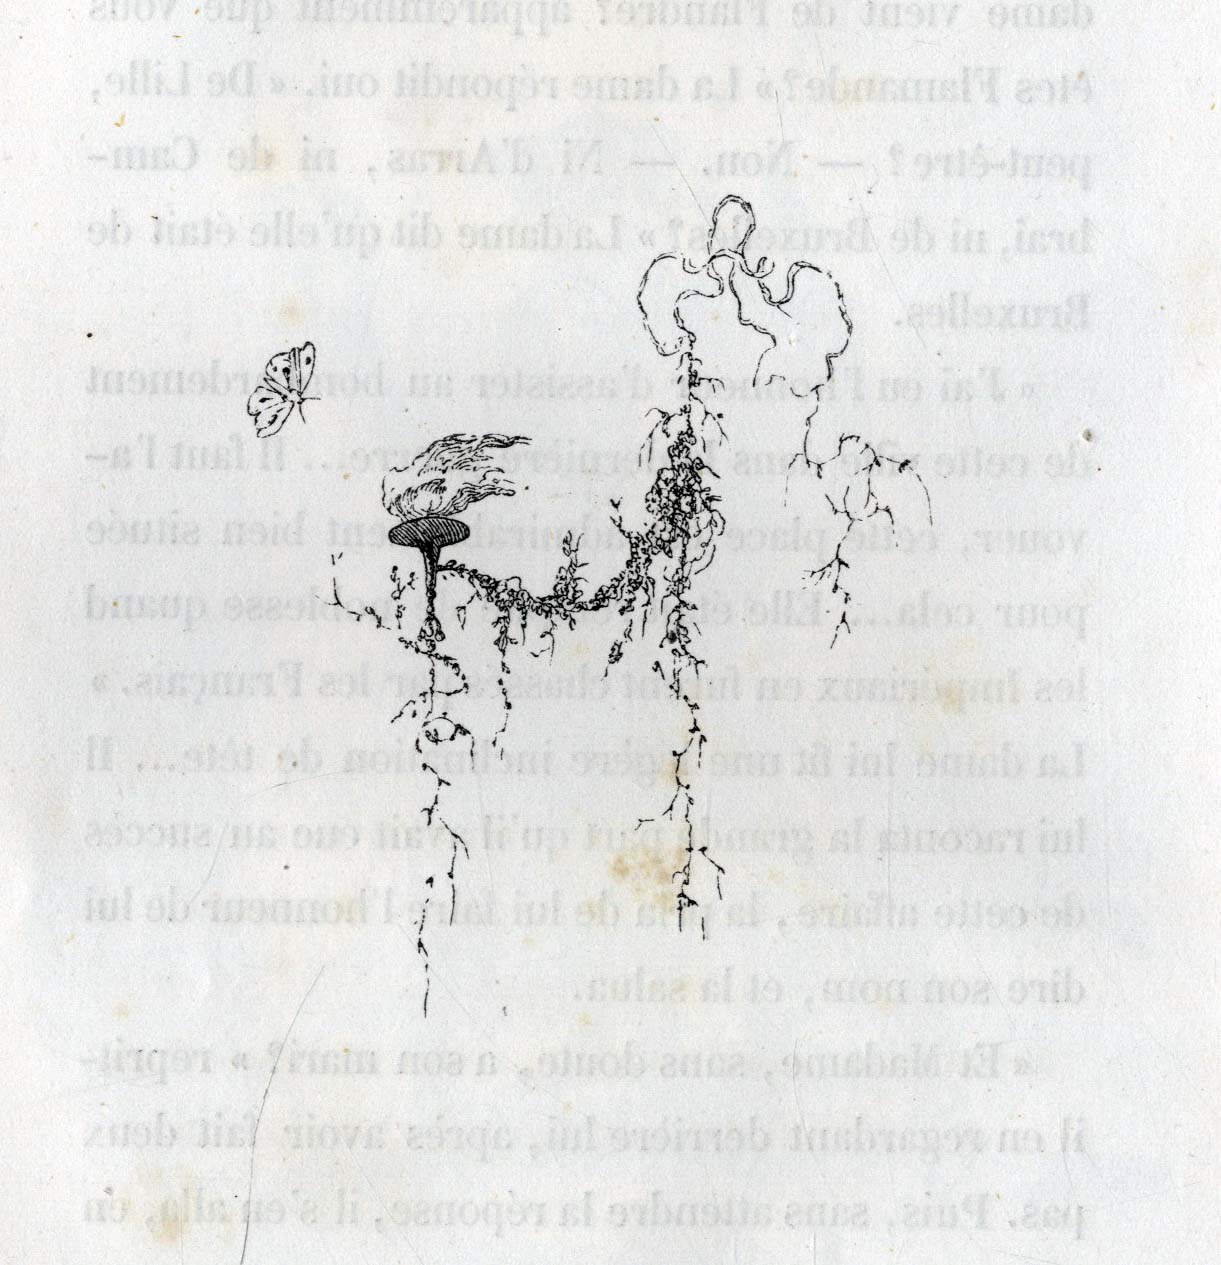 dame vient de Flandre? apparemment que vous
êtes Flamande? » La dame répondit oui. « De Lille,
peut-être? — Non. — Ni d'Arras, ni de Cam-
brai, ni de Bruxelles? » La dame dit qu'elle était de
Bruxelles.
« J'ai eu l'honneur d'assister au bombardement
de cette ville dans la dernière guerre... Il faut l'a-
vouer, cette place est admirablement bien située
pour cela... Elle était remplie de noblesse quand
les Impériaux en furent chassés par les Français. »
La dame lui fit une légère inclination de tête... Il
lui raconta la grande part qu'il avait eue au succès
de cette affaire, la pria de lui faire l'honneur de lui
dire son nom, et la salua.
« Et Madame, sans doute, a son mari? » reprit-
il en regardant derrière lui, après avoir fait deux
pas. Puis, sans attendre la réponse, il s'en alla, en